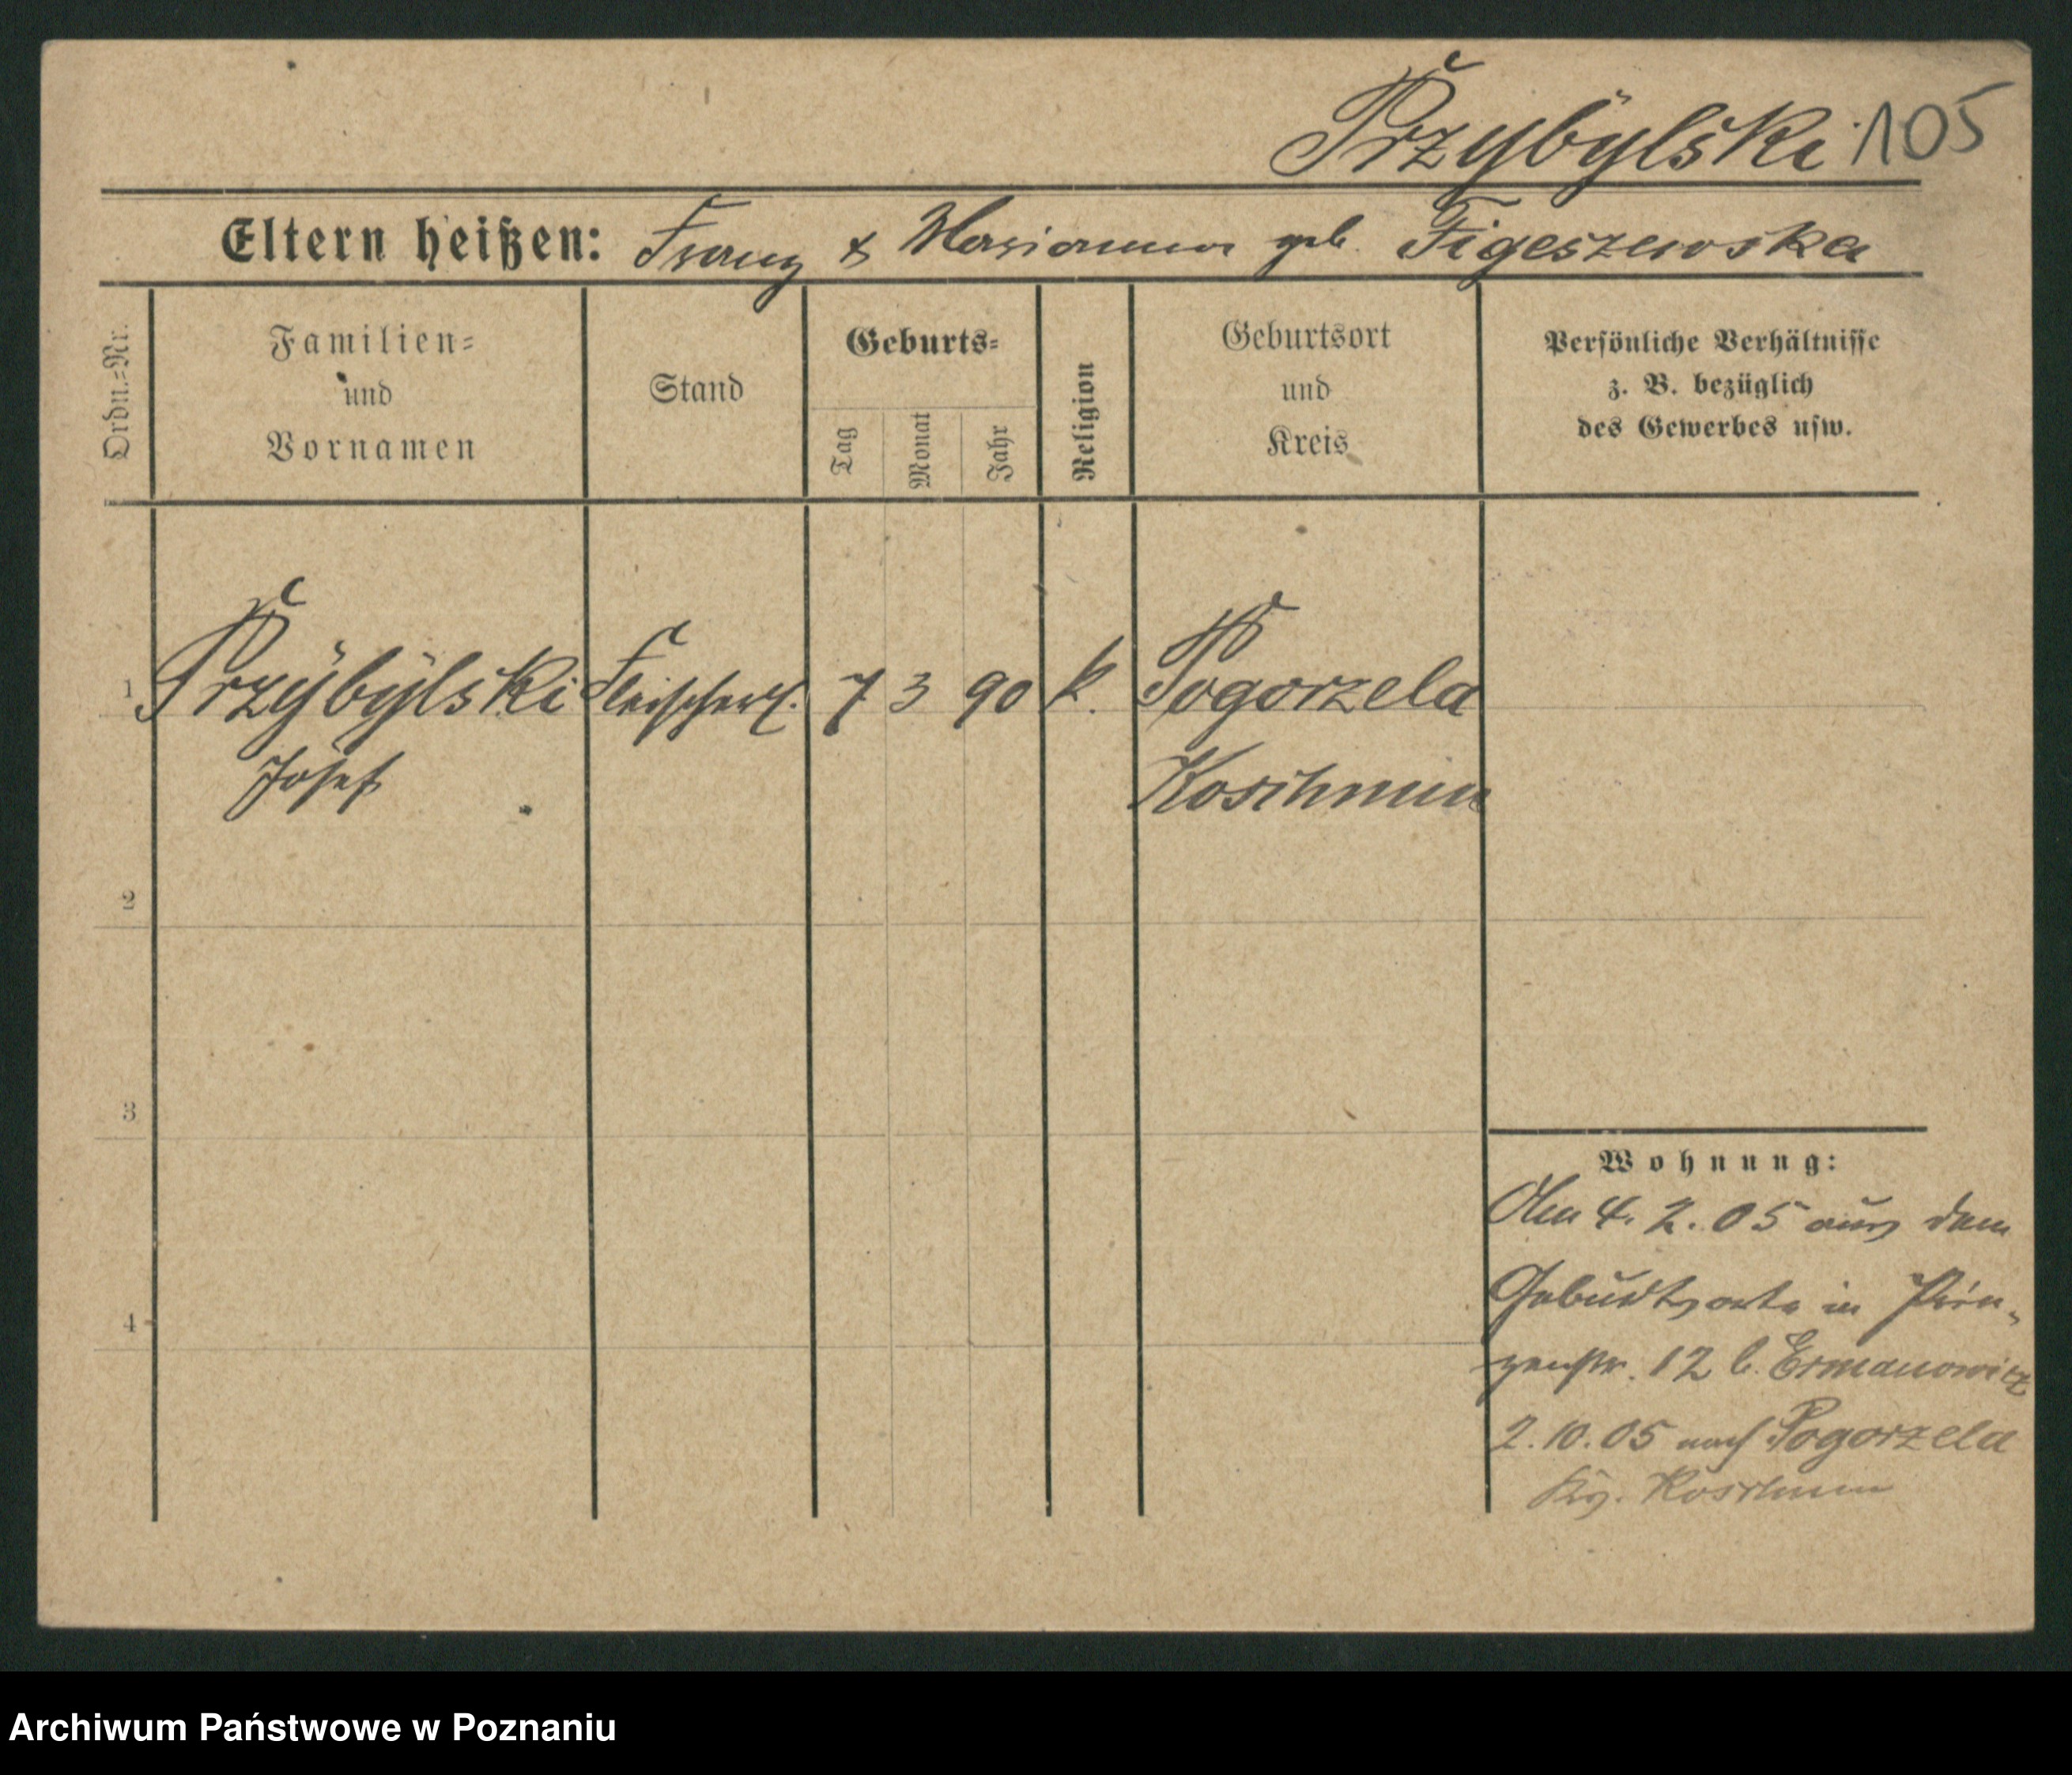 Przybylski 105
Eltern heißen: Franz & Marianna geb. Figeszewska
Ordn.=Nr.
Familien=
und
Vornamen
Stand
Geburts=
Tag
Monat
Jahr
Religion
Geburtsort
und
Kreis
Persönliche Verhältnisse
z. B. bezüglich
des Gewerbes usw.
1 Przybylski Fleischerl. 7 3 90 k. Pogorzela
Josef Koschmin
2
3
4
Wohnung:
Am 4. 2. 05 aus dem
Geburtsorte in Prin-
zenstr. 12 b. Ermanowicz
2. 10. 05 nach Pogorzela
Krs. Koschmin
Archiwum Państwowe w Poznaniu